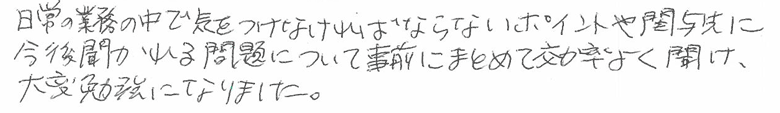 日常の業務の中で気をつけなければならないポイントや関与先に
今後聞かれる問題について事前にまとめて効率よく聞け、
大変勉強になりました。